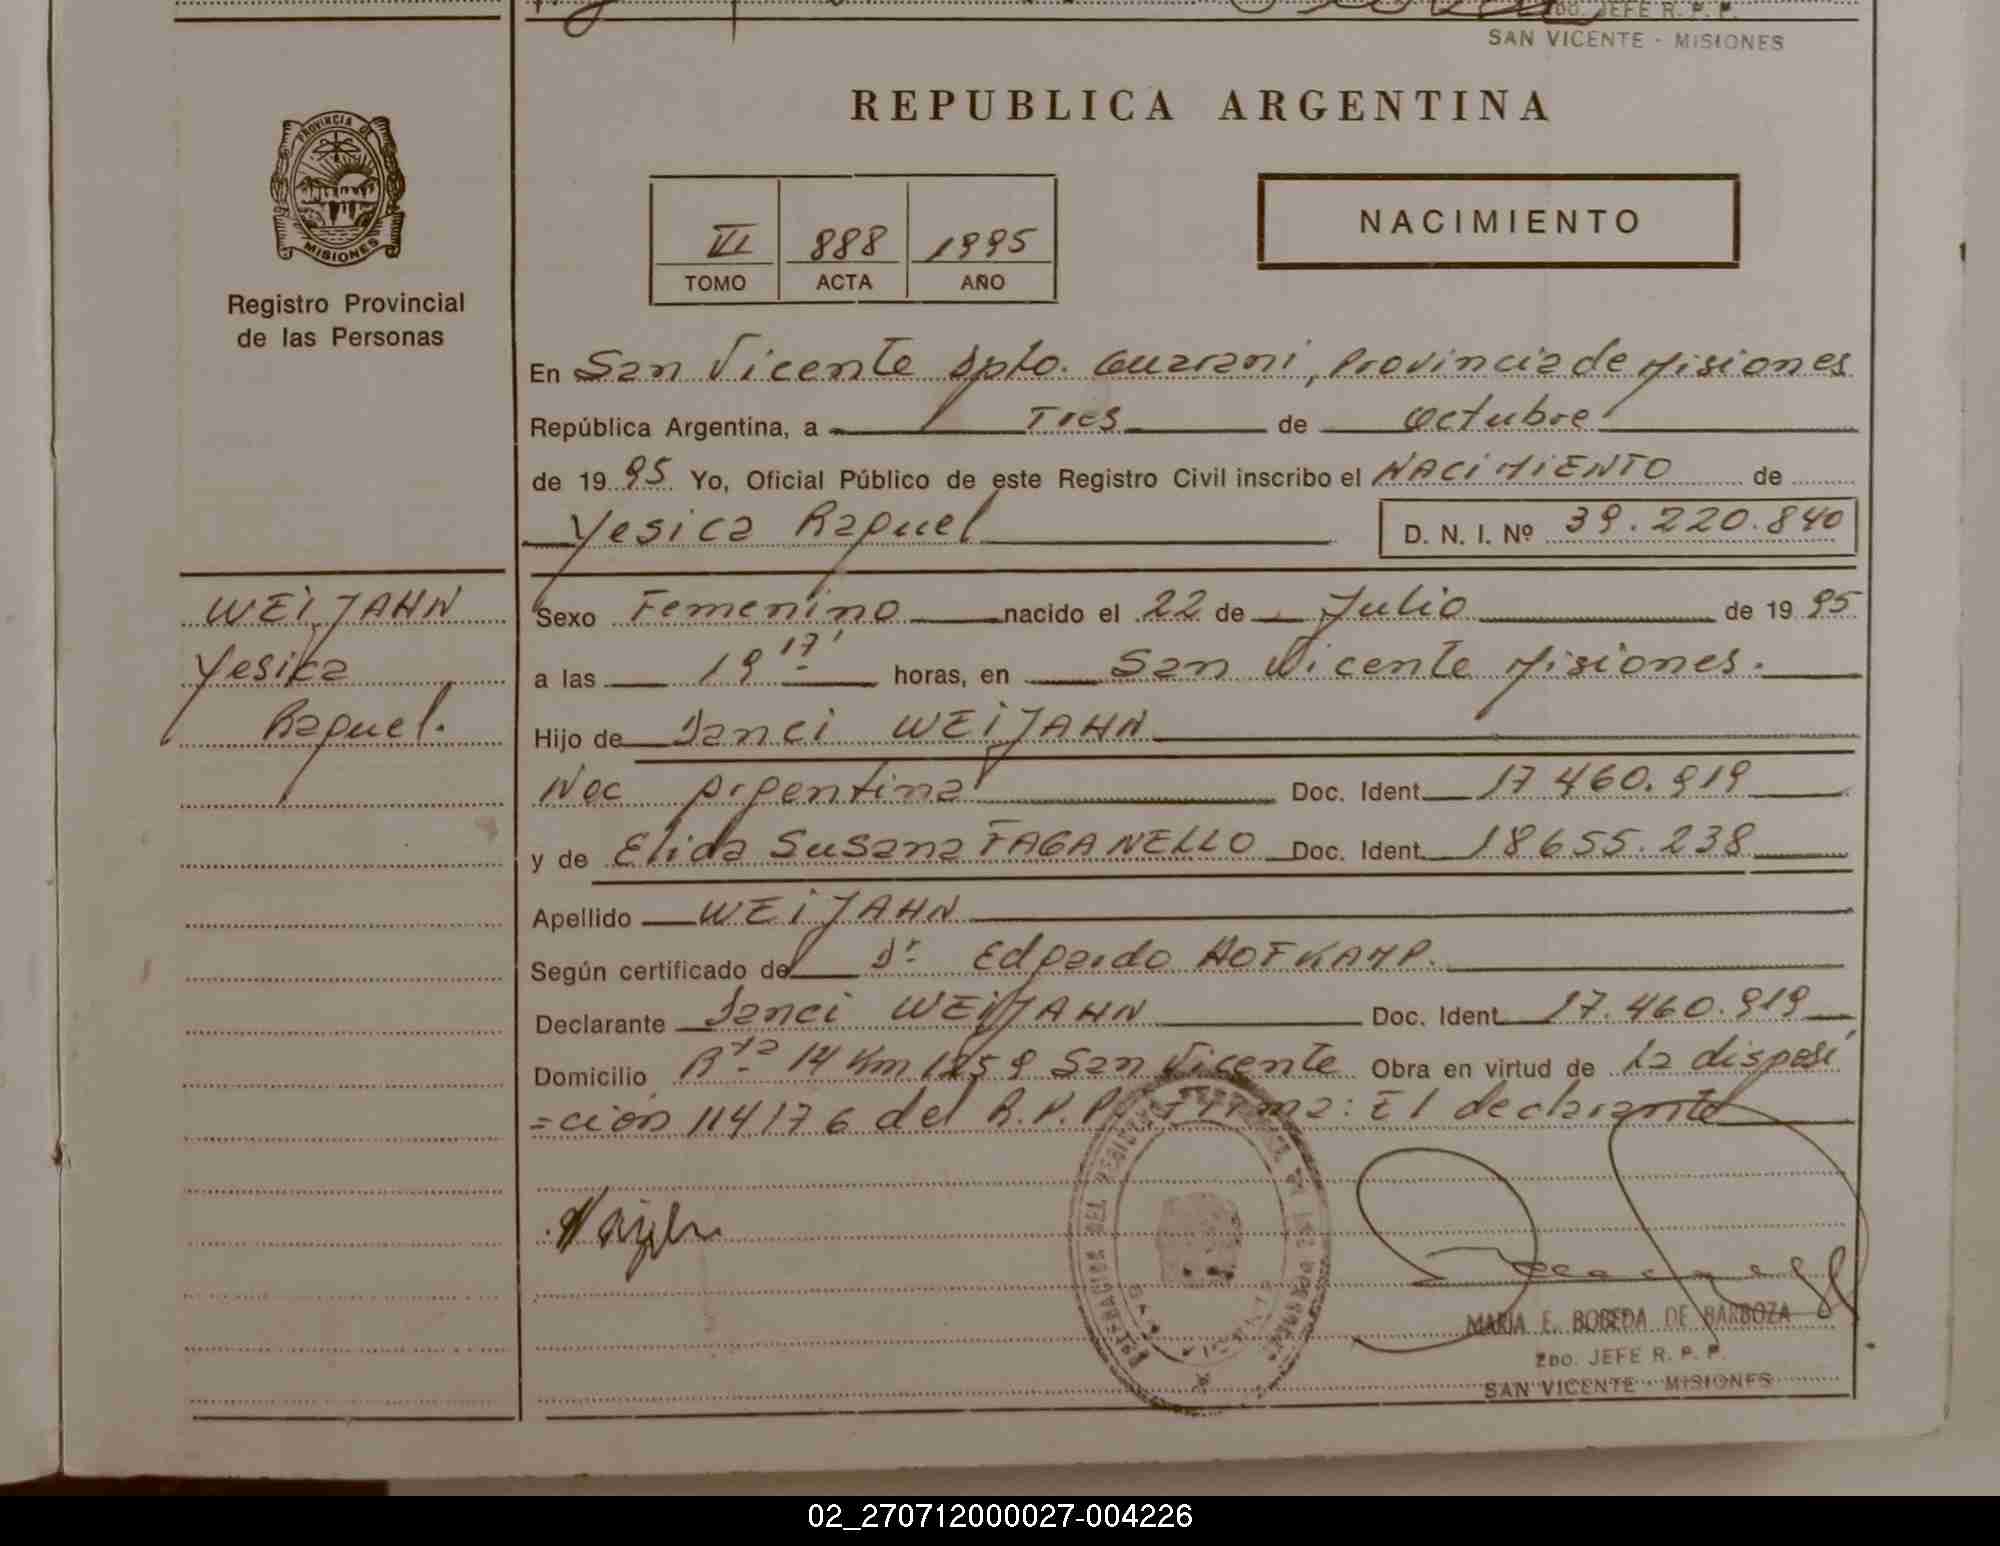 2DO. JEFE R. P. P.
SAN VICENTE - MISIONES
REPUBLICA ARGENTINA
PROVINCIA DE
MISIONES
Registro Provincial
de las Personas
888 1995
TOMO ACTA AÑO
NACIMIENTO
En San Vicente Dpto. Guarani, Provincia de Misiones
República Argentina, a Tres de Octubre
de 1995 Yo, Oficial Público de este Registro Civil inscribo el NACIMIENTO de
Yesica Raquel D. N. I. Nº 39.220.840
WEIJAHN
Yesica
Raquel.
Sexo Femenino nacido el 22 de Julio de 1995
a las 19 17' horas, en San Vicente Misiones.
Hijo de Danci WEIJAHN
Nac Argentina Doc. Ident. 17 460.919
y de Elida Susana FAGANELLO Doc. Ident. 18655.238
Apellido WEIJAHN
Según certificado de Dr Edgardo HOFKAMP.
Declarante Danci WEIJAHN Doc. Ident. 17.460.919
Domicilio Rta 14 Km 1259 San Vicente Obra en virtud de La disposi
=ción 114/76 del R.P.P. Firma: El declarante
MARIA E. BOBEDA DE BARBOZA
2DO. JEFE R. P. P.
SAN VICENTE - MISIONES
02_270712000027-004226